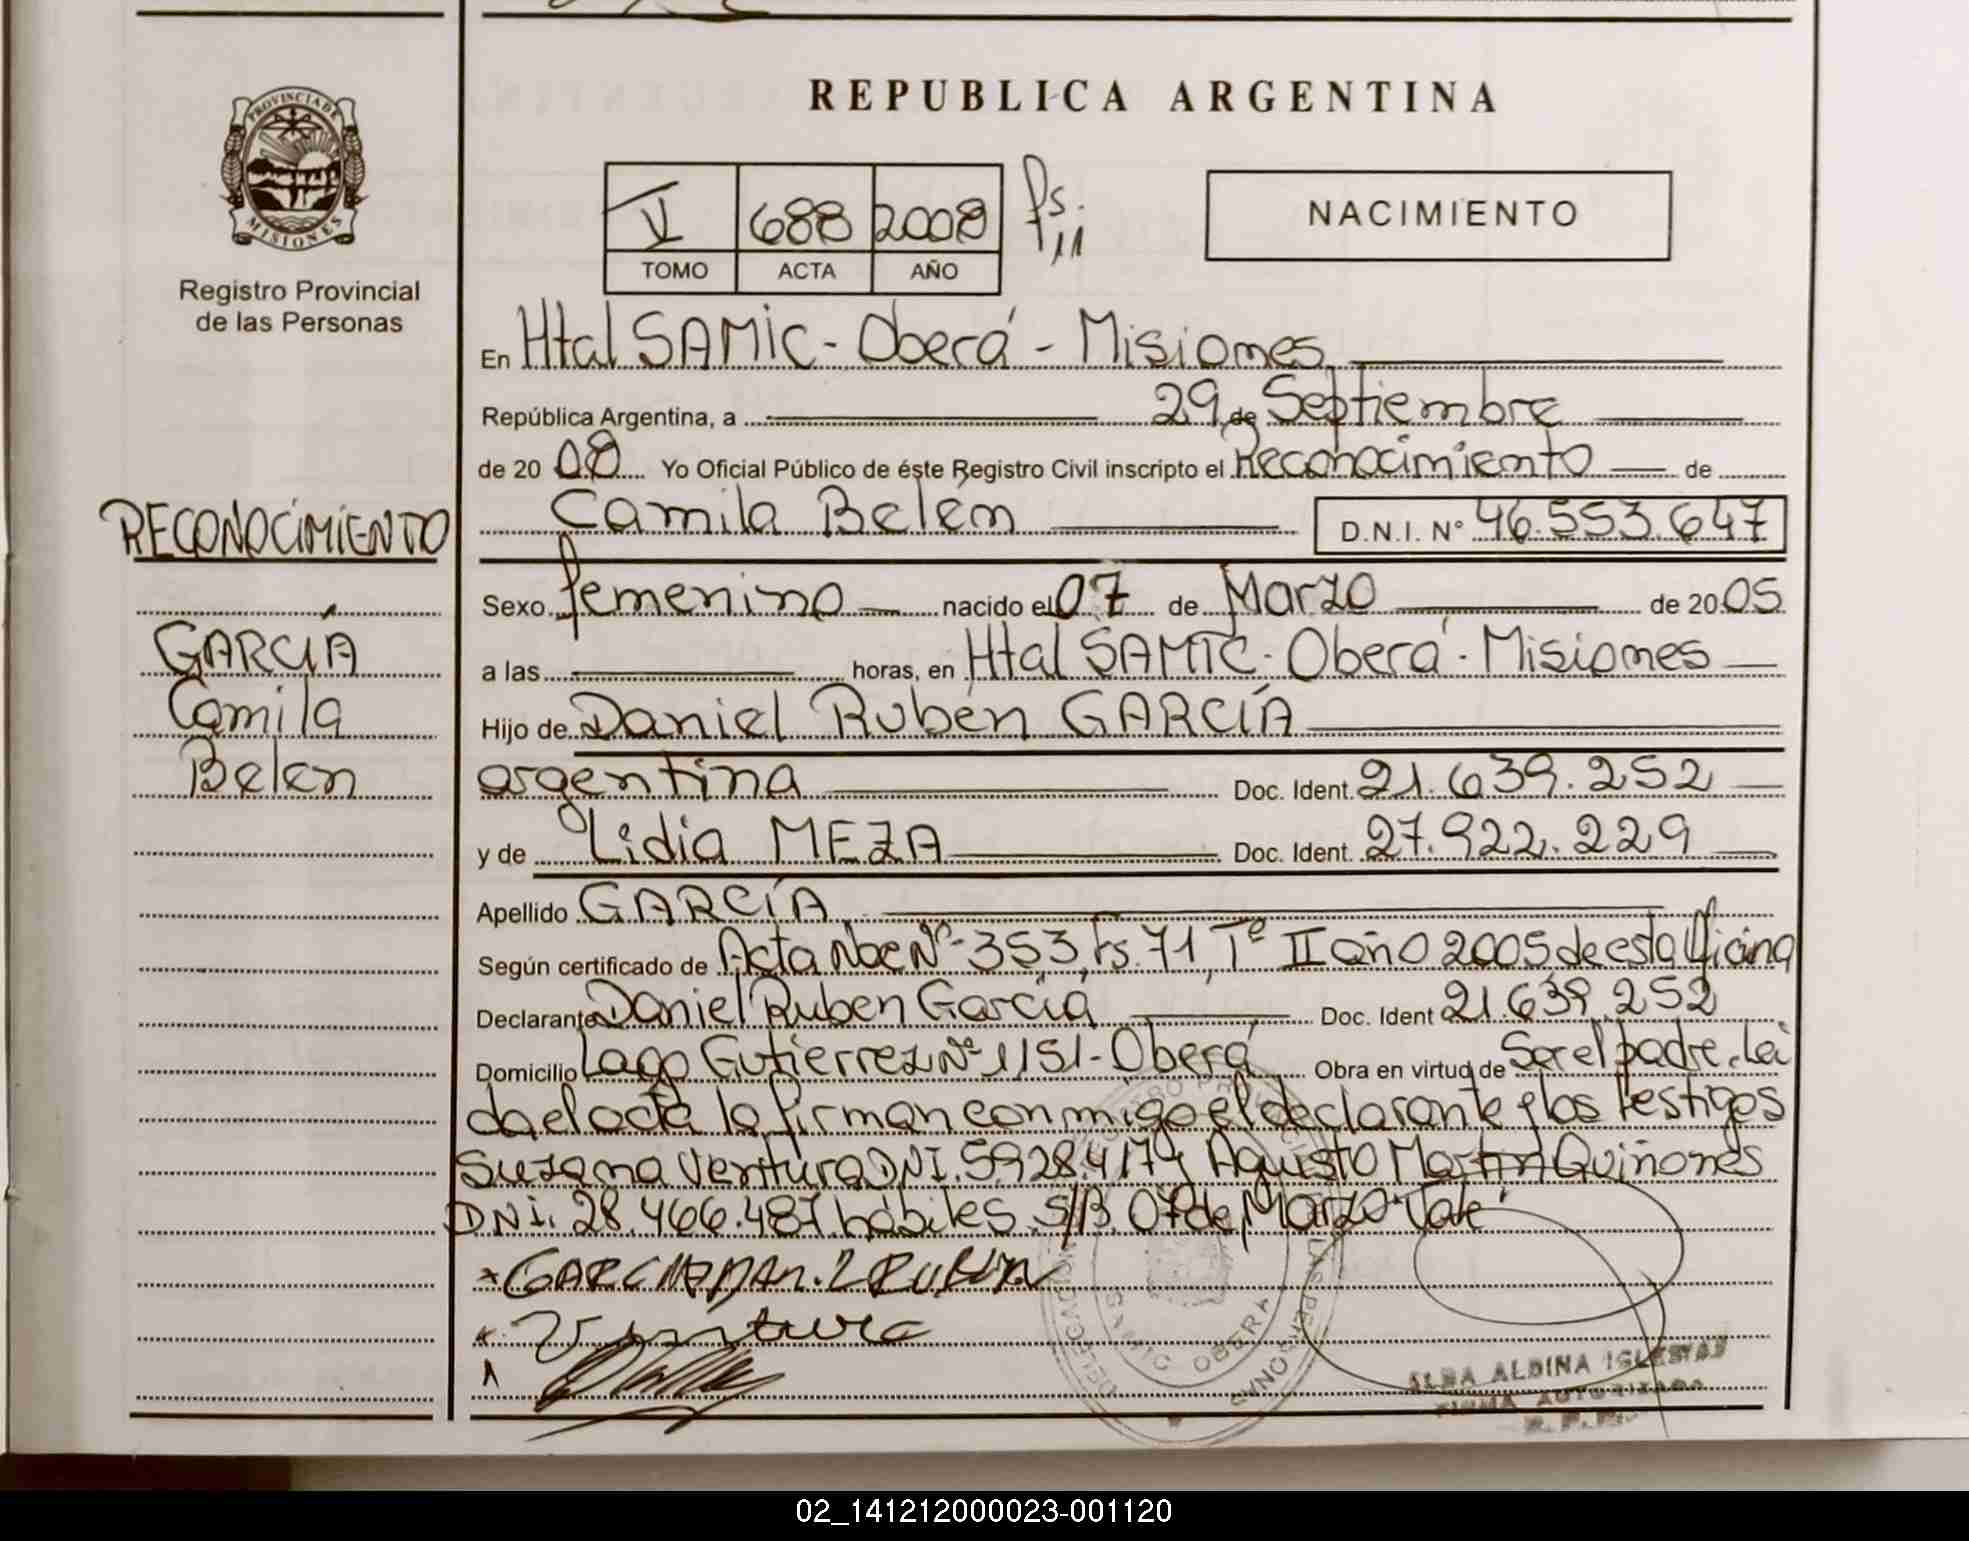 REPUBLICA ARGENTINA
PROVINCIA DE
MISIONES
Registro Provincial
de las Personas
V 688 2008 fs. 11
TOMO ACTA AÑO
NACIMIENTO
En Htal SAMIC - Oberá - Misiones
República Argentina, a 29 de Septiembre
de 20 08 Yo Oficial Público de éste Registro Civil inscripto el Reconocimiento de
Camila Belén D.N.I. N° 46.553.647
RECONOCIMIENTO
GARCIA
Camila
Belen
Sexo femenino nacido el 07 de Marzo de 20 05
a las horas, en Htal SAMIC - Oberá - Misiones
Hijo de Daniel Ruben GARCÍA
argentina Doc. Ident. 21.639.252
y de Lidia MEZA Doc. Ident. 27.922.229
Apellido GARCÍA
Según certificado de Acta Nac N° 353, fs. 71, T° II año 2005 de esta Oficina
Declarante Daniel Ruben Garcia Doc. Ident 21.639.252
Domicilio Lago Gutierrez N° 1151 - Oberá Obra en virtud de Ser el padre. Lei
da el acta la firman conmigo el declarante y los testigos
Susana Ventura DNI. 5.928.417 y Agusto Martin Quiñones
DNI. 28.466.487 habiles. S/B. 07 de Marzo Vale
Ventura
OBERA
ELBA ALDINA IGLESIAS
FIRMA AUTORIZADA
R. P. P.
02_141212000023-001120